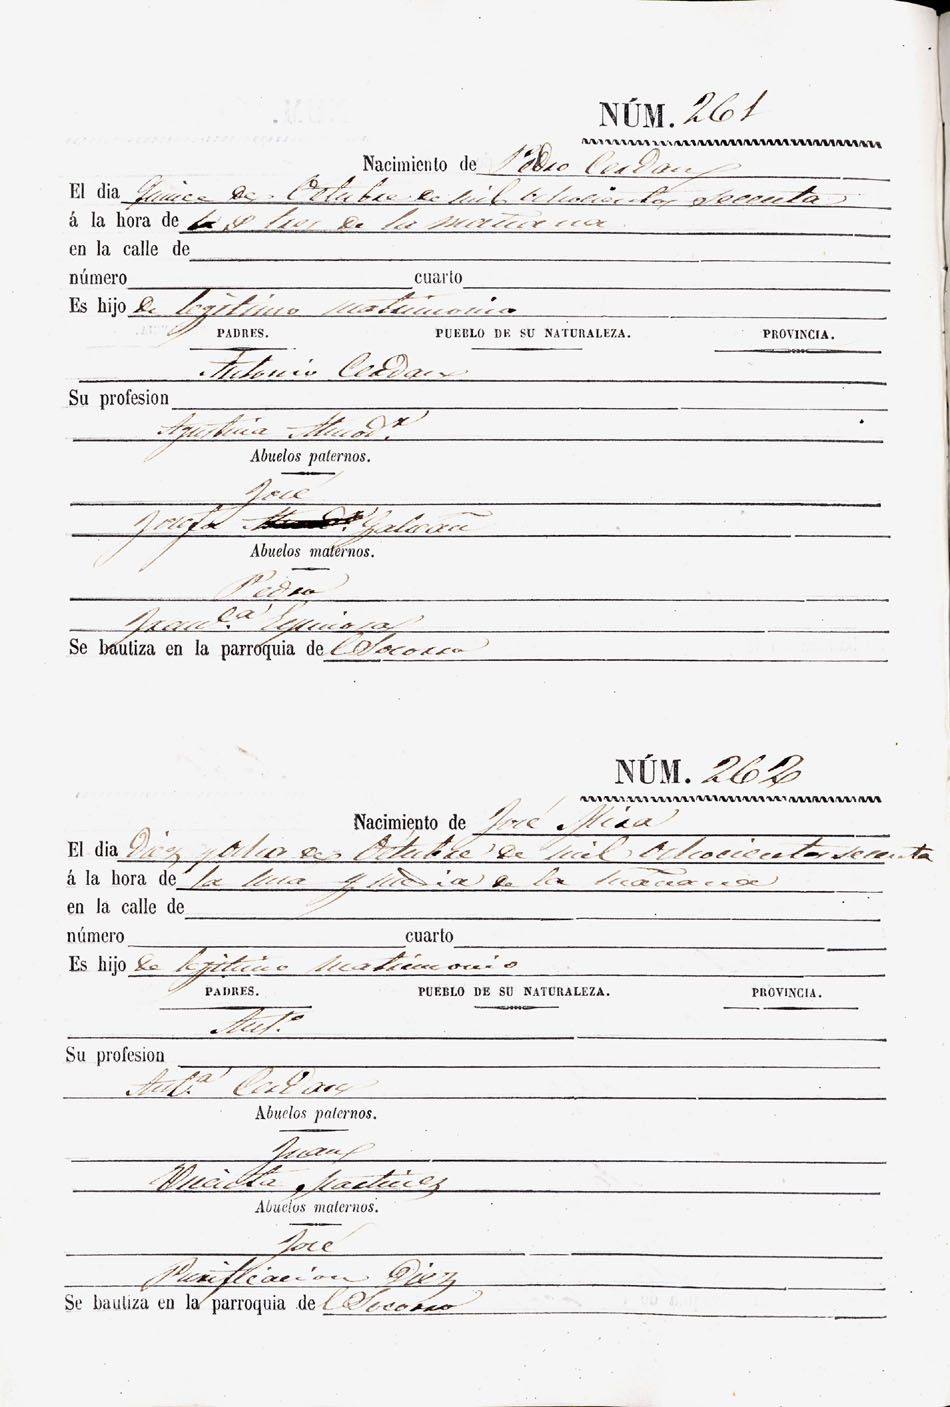 NÚM. 261
Nacimiento de Pedro Cerdan
El dia Quince de Octubre de mil ochocientos sesenta
á la hora de las tres de la mañana
en la calle de
número cuarto
Es hijo de legitimo matrimonio
PADRES. PUEBLO DE SU NATURALEZA. PROVINCIA.
Antonio Cerdan
Su profesion
Agustina
Abuelos paternos.
José
Josefa Galvañ
Abuelos maternos.
Pedro
Fran.ca Espinosa
Se bautiza en la parroquia del Socorro
NÚM. 262
Nacimiento de José Mira
El dia Diez y ocho de Octubre de mil ochocientos sesenta
á la hora de la una y media de la mañana
en la calle de
número cuarto
Es hijo de legitimo matrimonio
PADRES. PUEBLO DE SU NATURALEZA. PROVINCIA.
Ant.o
Su profesion
Ant.a Cerdan
Abuelos paternos.
Juan
Vicenta Martinez
Abuelos maternos.
José
Purificacion Diez
Se bautiza en la parroquia del Socorro